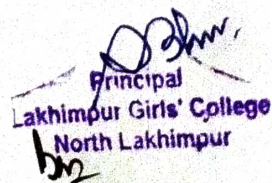 Principal
Lakhimpur Girls' College
North Lakhimpur